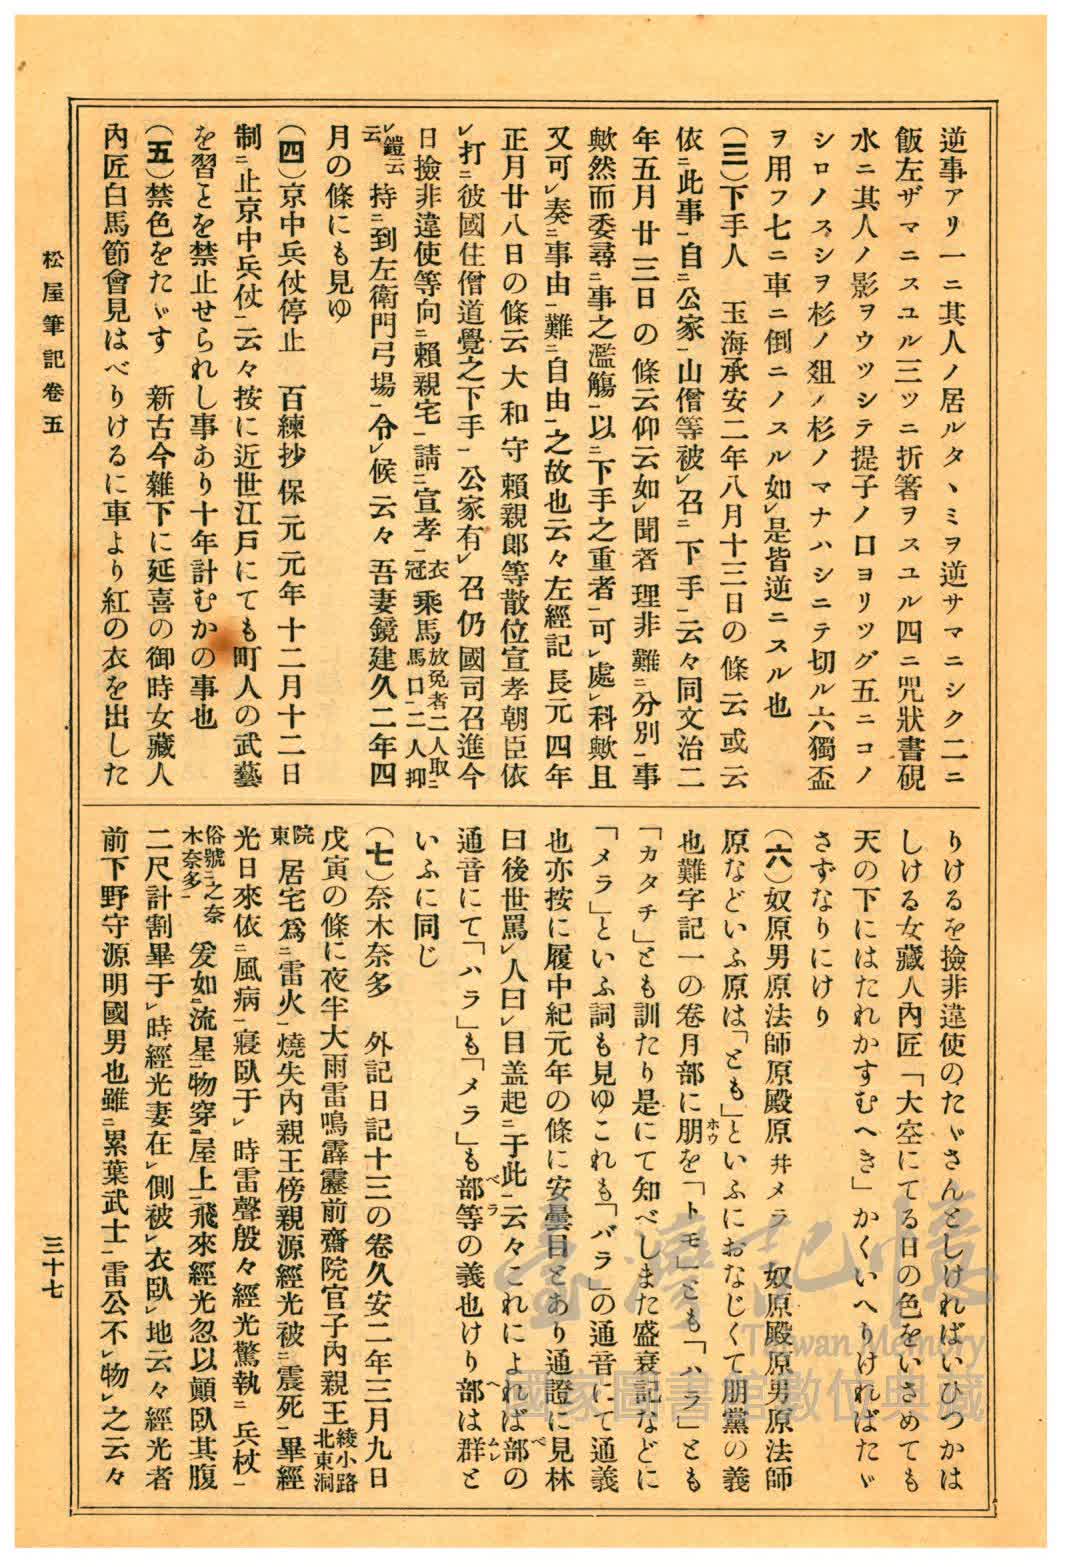 逆事アリ一ニ其人ノ居ルタヽミヲ逆サマニシク二ニ
飯左ザマニスユル三ツニ折箸ヲスユル四ニ咒狀書硯
水ニ其人ノ影ヲウツシテ提子ノ口ヨリツグ五ニコノ
シロノスシヲ杉ノ爼ノ杉ノマナハシニテ切ル六獨盃
ヲ用フ七ニ車ニ倒ニノスル如㆑是皆逆ニスル也
(三)下手人　玉海承安二年八月十三日の條云或云
依㆓此事㆒自㆓公家㆒山僧等被㆑召㆓下手㆒云々同文治二
年五月廿三日の條云仰云如㆑聞者理非難㆓分別㆒事
歟然而委尋㆓事之濫觴㆒以㆓下手之重者㆒可㆑處㆑科歟且
又可㆑奏㆓事由㆒難㆓自由㆒之故也云々左經記長元四年
正月廿八日の條云大和守賴親郞等散位宣孝朝臣依
㆑打㆓彼國住僧道覺之下手㆒公家有㆑召仍國司召進今
日撿非違使等向㆓賴親宅㆒請㆓宣孝㆒衣冠乘馬放免者二人取㆓馬口㆒二人抑
㆑鎧云云持㆓到左衛門弓場㆒令㆑候云々吾妻鏡建久二年四
月の條にも見ゆ
(四)京中兵仗停止　百練抄保元元年十二月十二日
制㆓止京中兵仗㆒云々按に近世江戸にても町人の武藝
を習ことを禁止せられし事あり十年計むかの事也
(五)禁色をたゞす　新古今雜下に延喜の御時女藏人
內匠白馬節會見はべりけるに車より紅の衣を出した
りけるを撿非違使のたゞさんとしければいひつかは
しける女藏人內匠「大空にてる日の色をいさめても
天の下にはたれかすむへき」かくいへりければたゞ
さずなりにけり
(六)奴原男原法師原殿原幷メラ　奴原殿原男原法師
原などいふ原は「とも」といふにおなじくて朋黨の義
也難字記一の卷月部に朋ホウを「トモ」とも「ハラ」とも
「カタチ」とも訓たり是にて知べしまた盛衰記などに
「メラ」といふ詞も見ゆこれも「バラ」の通音にて通義
也亦按に履中紀元年の條に安曇目とあり通證に見林
曰後世罵㆑人曰㆑目盖起㆓于此㆒云々これによれば部べの
通音にて「ハラ」も「メラ」も部等べラの義也けり部へは群ムレと
いふに同じ
(七)奈木奈多　外記日記十三の卷久安二年三月九日
戊寅の條に夜半大雨雷鳴霹靂前齋院官子內親王綾小路北東洞
院東居宅爲㆓雷火㆒燒失內親王傍親源經光被㆓震死㆒畢經
光日來依㆓風病㆒寢臥于㆑時雷聲殷々經光驚執㆓兵杖㆒
俗號㆓之奈木奈多㆒爰如㆓流星㆒物穿㆓屋上㆒飛來經光忽以顚臥其腹
二尺計割畢于㆑時經光妻在㆑側被㆑衣臥㆑地云々經光者
前下野守源明國男也雖㆓累葉武士㆒雷公不㆑物㆑之云々
松屋筆記卷五
三十七
臺灣記憶
Taiwan Memory
國家圖書館數位典藏